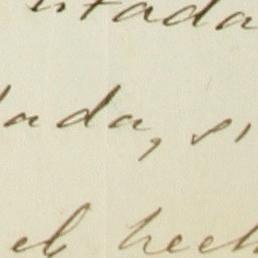 tada
ada, si
el hech